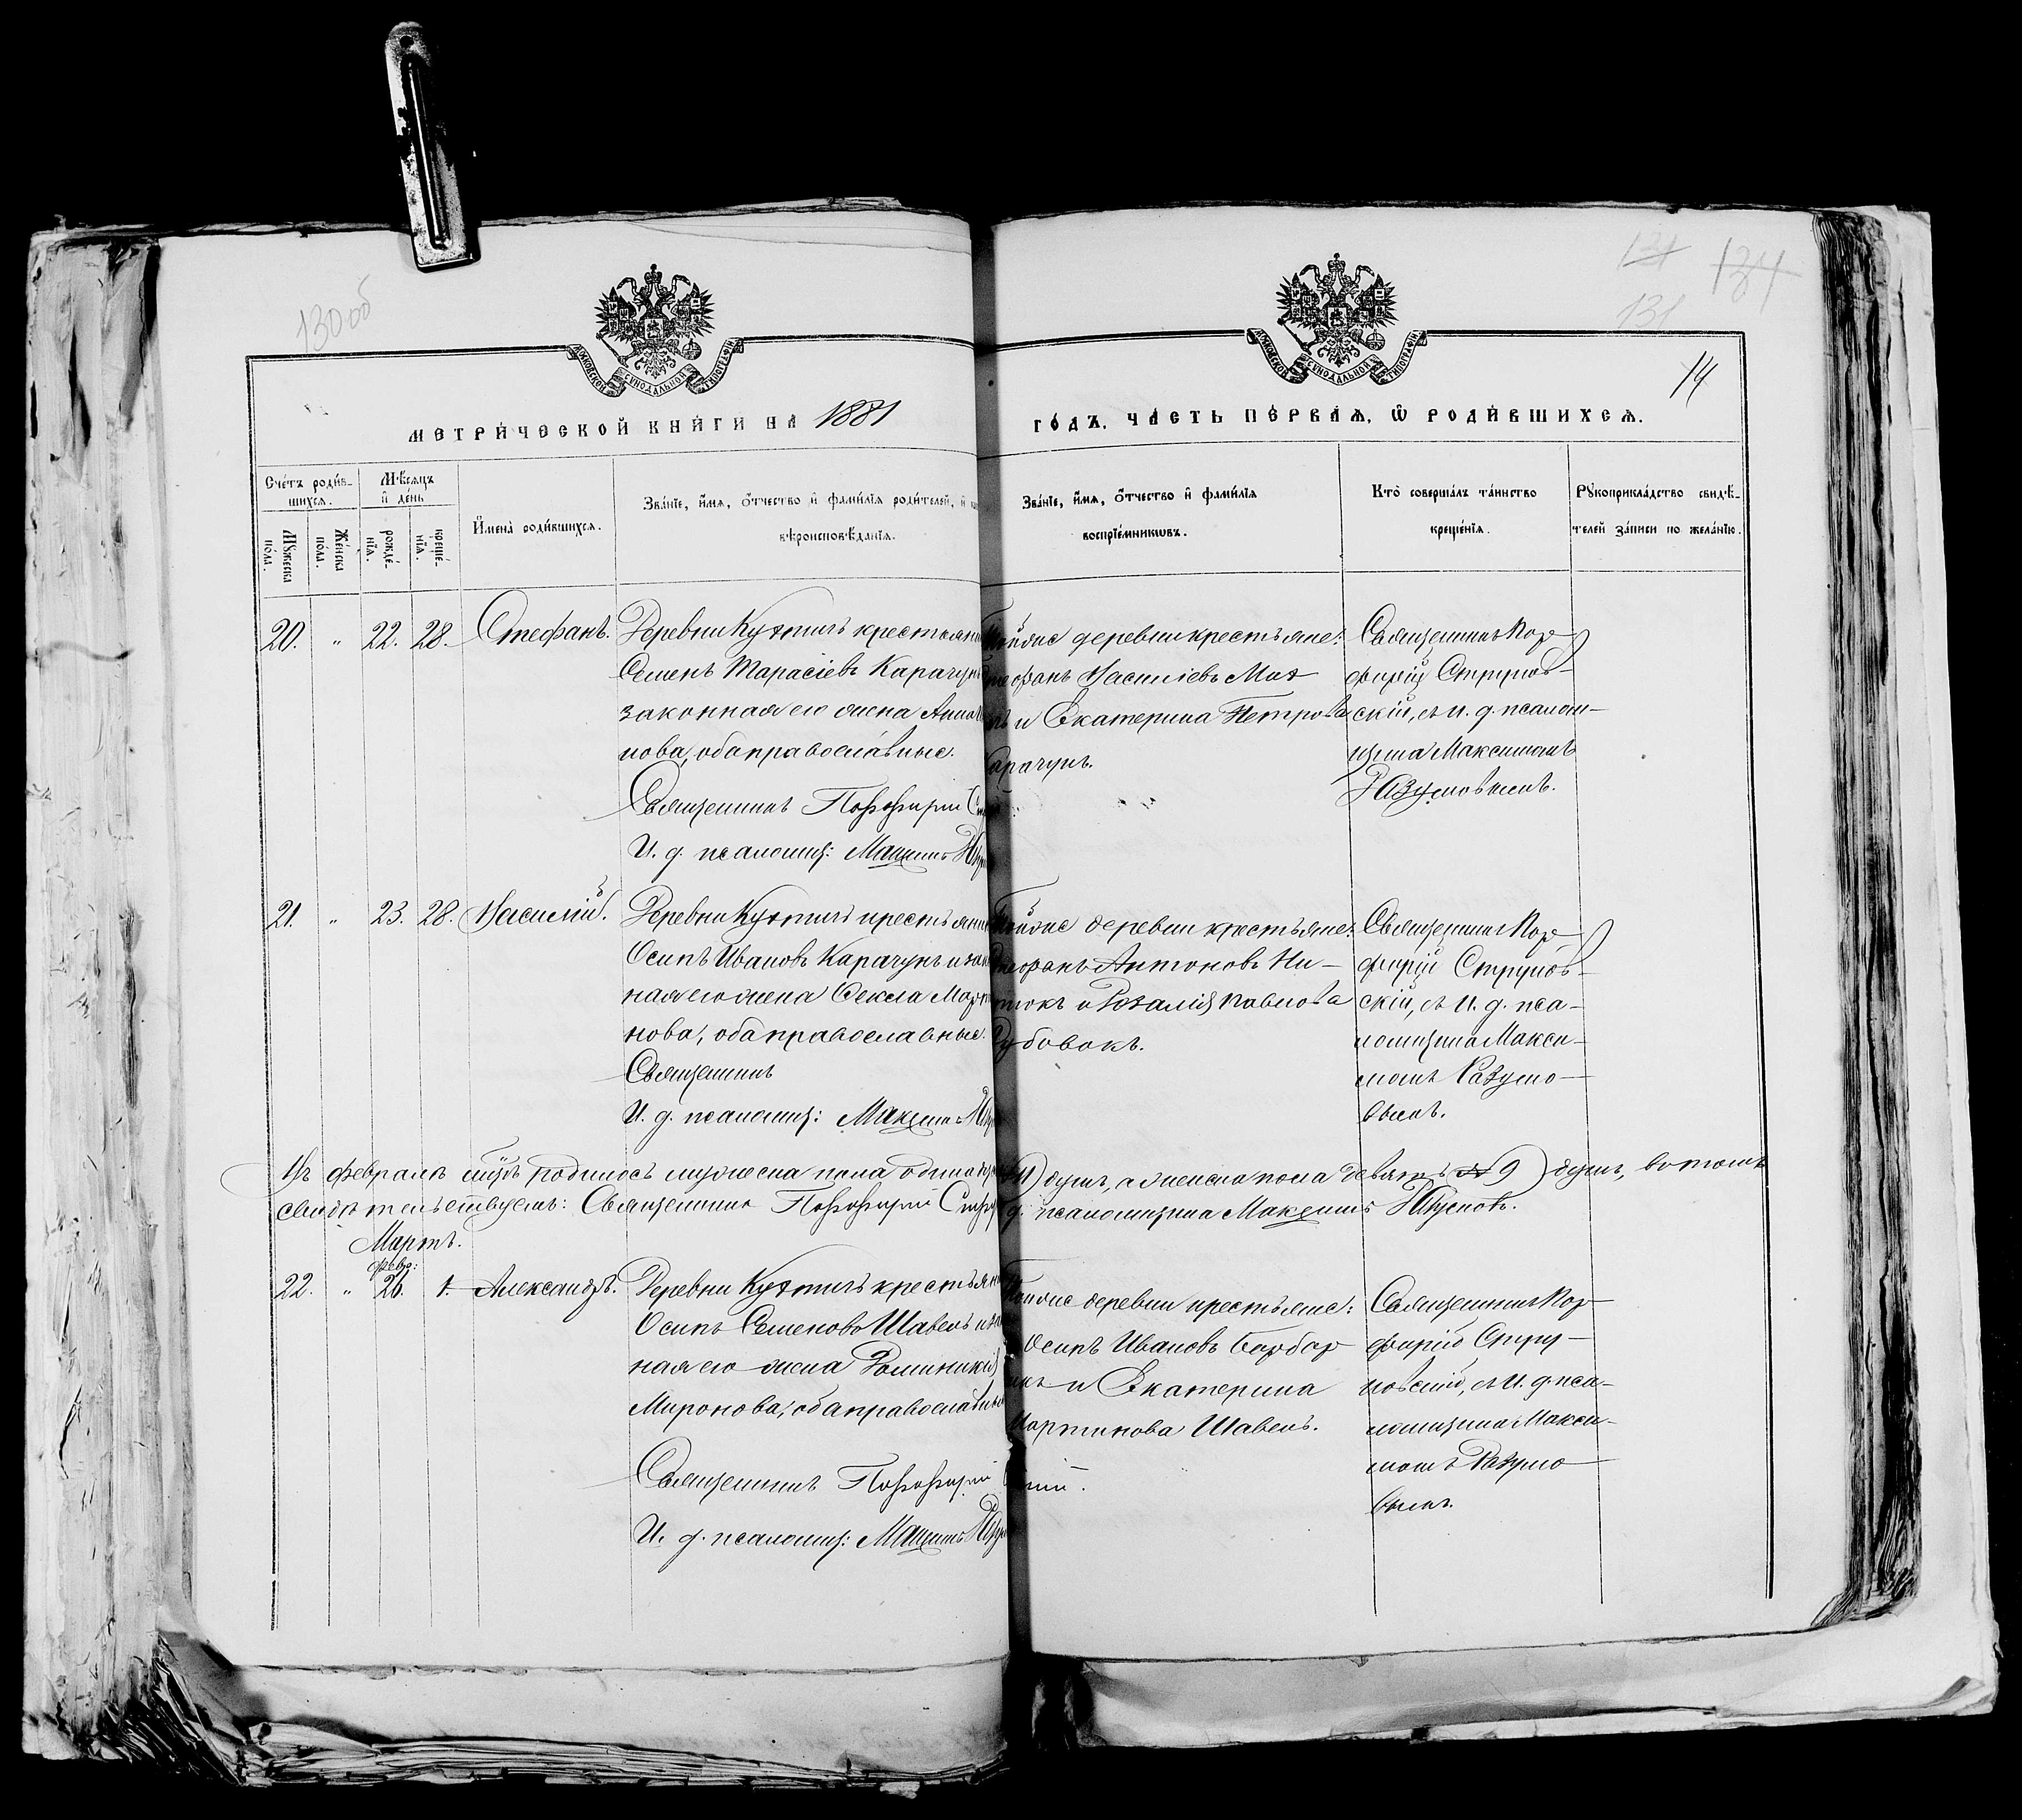 130 об
131
134
131
14
МОСКОВСКОЙ СѴНОДАЛЬНОЙ ТИПОГРАФІИ
МОСКОВСКОЙ СѴНОДАЛЬНОЙ ТИПОГРАФІИ
МЕТРИ́ЧЕСКОЙ КНИ́ГИ НА 1881
ГО́ДЪ, ЧА́СТЬ ПЕ́РВАѦ, Ѿ РОДИ́ВШИХСѦ.
Сче́тъ роди́в-
шихсѧ.
Мꙋжеска по́ла.
Же́нска по́ла.
Мѣ́сѧцъ
и҆ де́нь
рожде́-
нїѧ.
креще́-
нїѧ.
И҆мена̀ роди́вшихсѧ.
Зва́нїе, и҆́мѧ, ѻ҆́тчество и҆ фами́лїѧ роди́телей, и҆
вѣроисповѣ́данїѧ.
Зва́нїе, и҆́мѧ, ѻ҆́тчество и҆ фами́лїѧ
воспрїе́мникѡвъ.
Кто̀ соверша́лъ та́инство
креще́нїѧ.
Рꙋкоприкла́дство свидѣ́-
телей за́писи по жела́нїю.
20. " 22. 28. Стефанъ.
Деревни Кухтичъ крестьянинъ
Семенъ Тарасіевъ Карачунъ
законная его жена Анна
нова, оба православные.
Священникъ Порфирій
И. д. псаломщ: Максимъ
Тойже деревни крестьяне:
Стефанъ Василіевъ Мах
и Екатерина Петрова
Карачунъ.
Священникъ Пор-
фирій Струков-
скій, съ и. д. псалом-
щика Максимомъ
Разумовымъ.
21. " 23. 28. Василій.
Деревни Кухтичъ крестьянинъ
Осипъ Ивановъ Карачунъ и закон
ная его жена Фекла Март
нова, оба православные.
Священникъ
И. д. псаломщ: Максимъ
Тойже деревни крестьяне:
Стефанъ Антоновъ Ни-
и Розалія Павлова
Дубовокъ.
Священникъ Пор-
фирій Струков-
скій, съ и. д. пса-
ломщика Макси-
момъ Разумо-
вымъ.
Въ февралѣ м-цѣ родилось мужеска пола одинадцать (11) душъ, а женска пола девять (9) душъ, въ томъ
свидѣтельствуемъ: Священникъ Порфирій псаломщика Максимъ Разумовъ.
Мартъ.
февр:
22. " 26. 1. Александръ.
Деревни Кухтичъ крестьянинъ
Осипъ Семеновъ Шавель и закон
ная его жена Доминикія
Миронова, оба православные
Священникъ Порфирій
И. д. псаломщ: Максимъ
Тойже деревни крестьяне:
Осипъ Ивановъ Барбар
и Екатерина
Мартинова Шавель.
Священникъ Пор-
фирій Стру-
ковскій, съ и. д. пса-
ломщика Макси-
момъ Разумо-
вымъ.